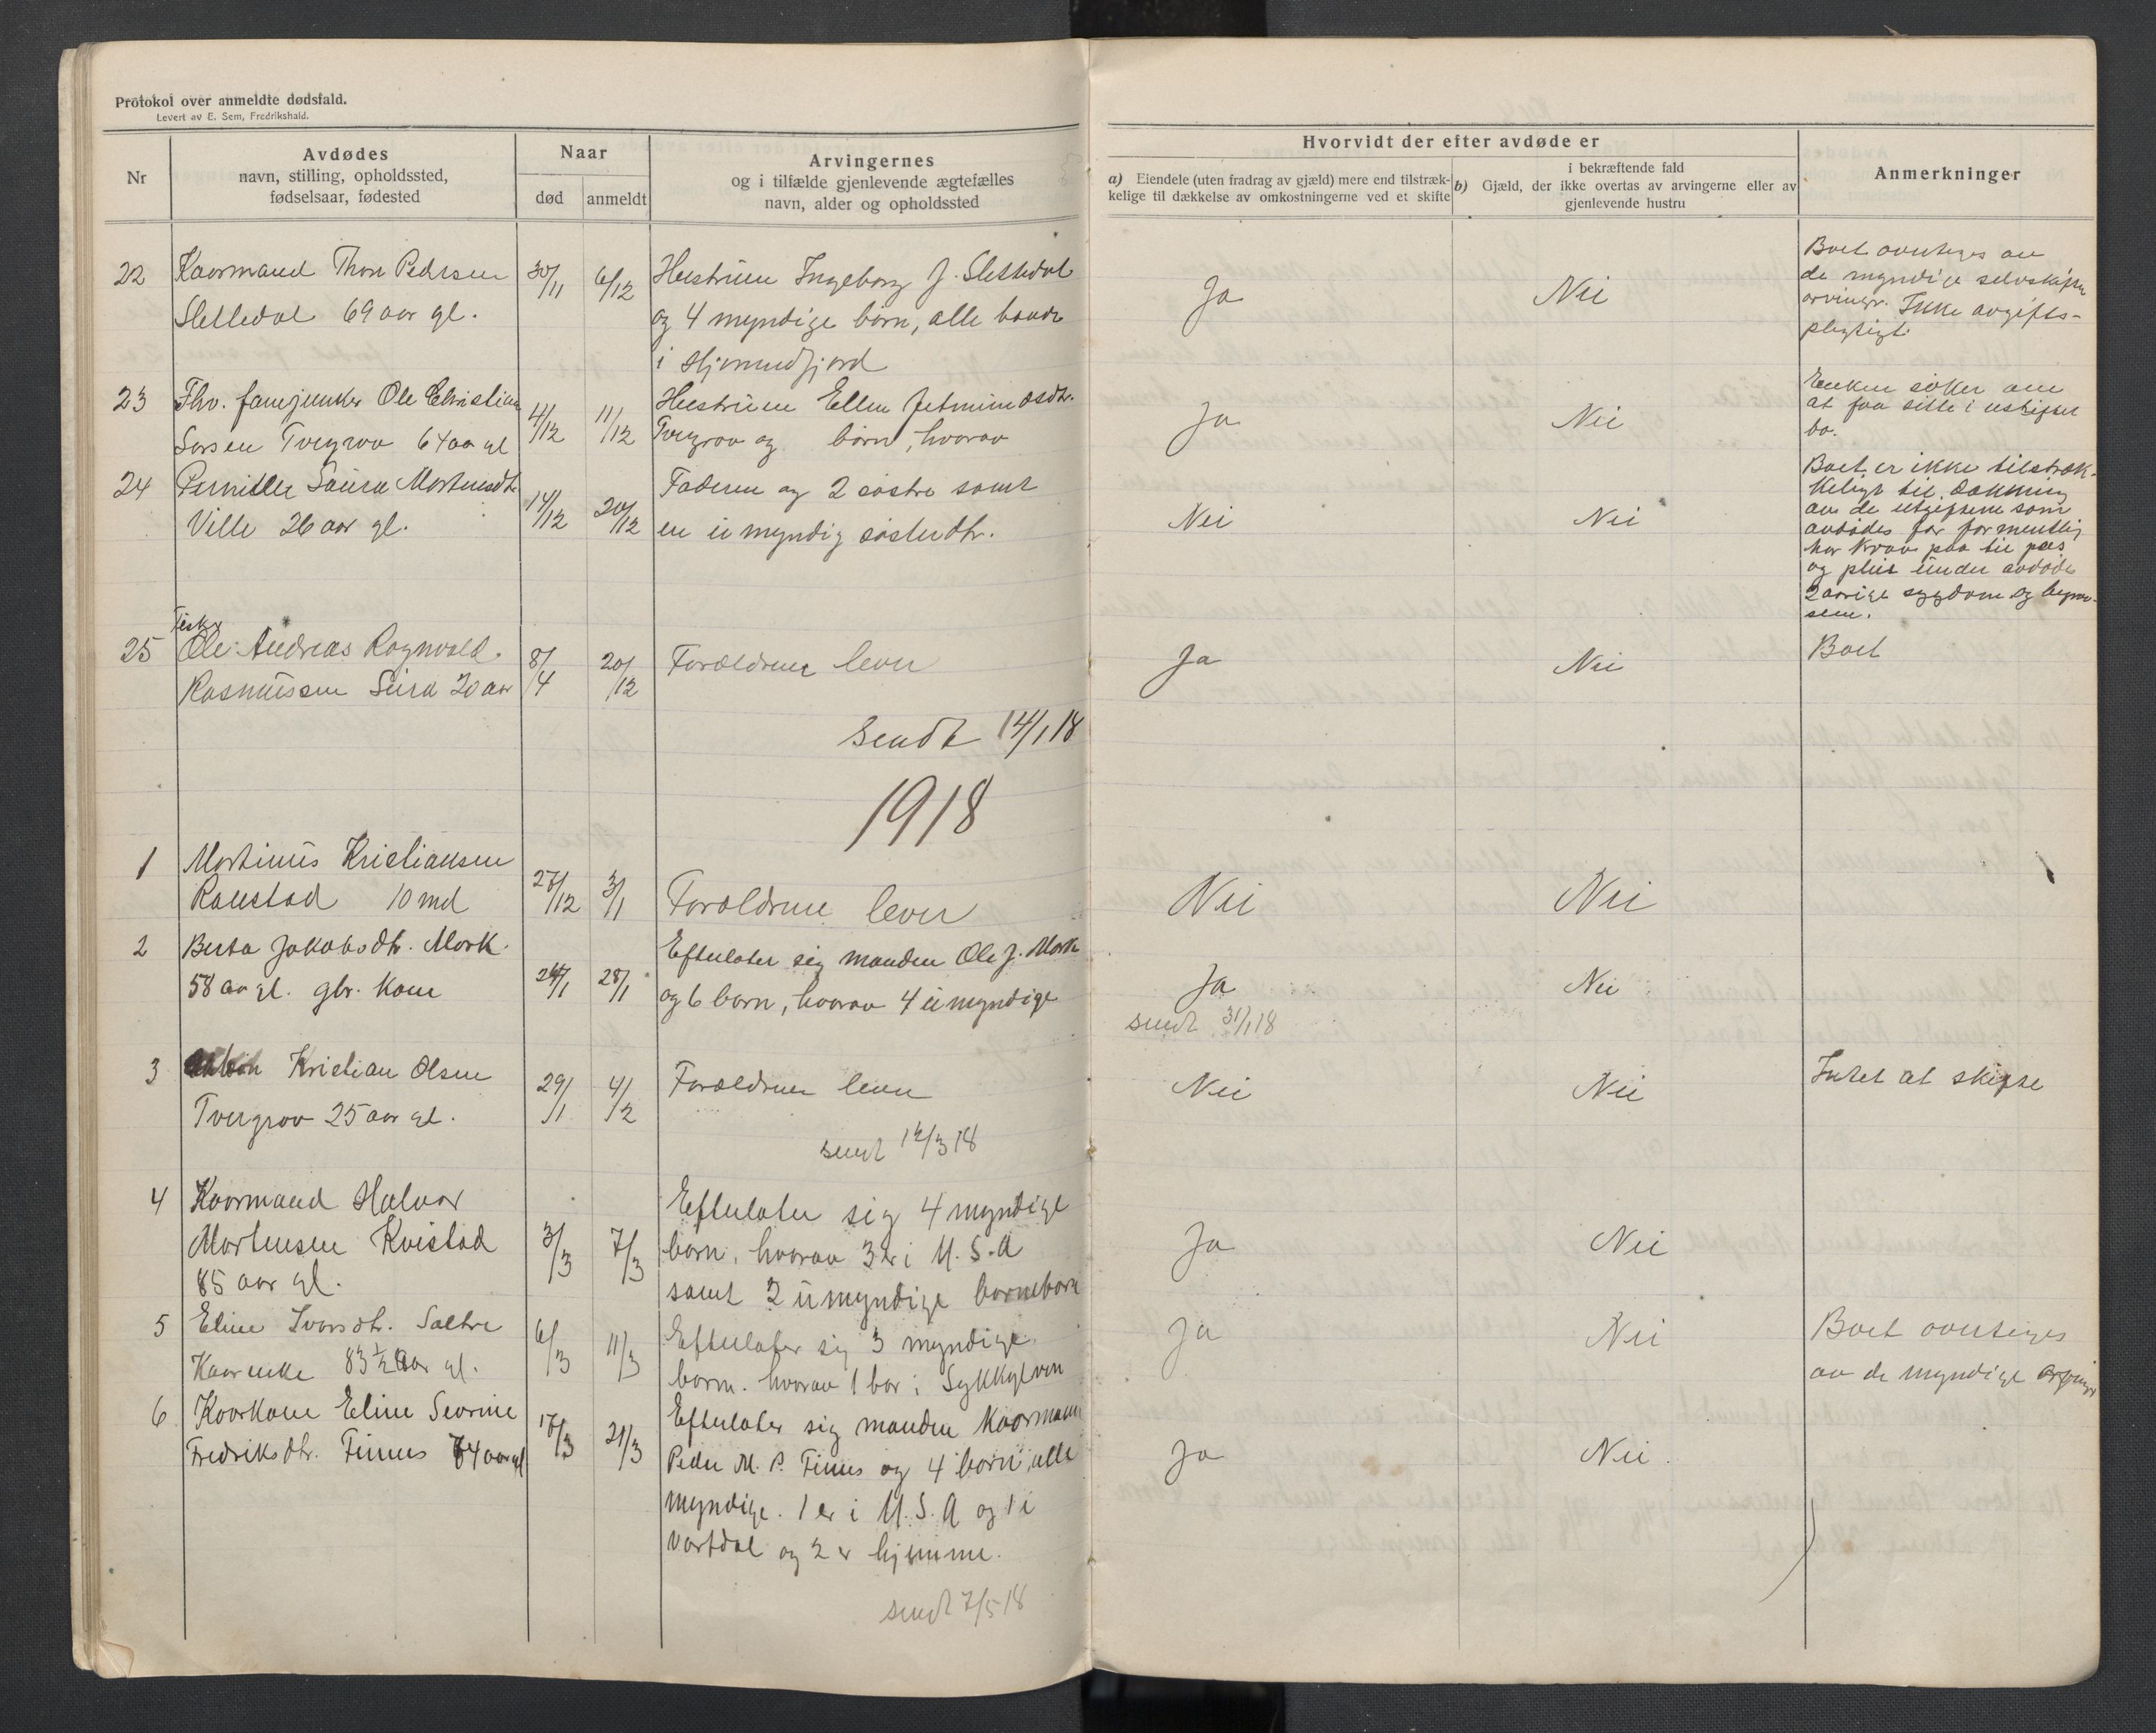 Protokol over anmeldte dødsfald.
Levert av E. Sem, Fredrikshald.
Nr
Avdødes
navn, stilling, opholdssted,
fødselsaar, fødested
Naar
død
anmeldt
Arvingernes
og i tilfælde gjenlevende ægtefælles
navn, alder og opholdssted
Hvorvidt der efter avdøde er
a) Eiendele (uten fradrag av gjæld) mere end tilstræk-
kelige til dækkelse av omkostningerne ved et skifte
i bekræftende fald
b) Gjæld, der ikke overtas av arvingerne eller av
gjenlevende hustru
Anmerkninger
22
Kaarmand Thore Pedersen
Slettedal 69 aar gl.
30/11
6/12
Hustruen Ingeborg J. Slettedal
og 4 myndige børn, alle boende
i Hjørundfjord
Ja
Nei
Boet overtages av
de myndige selvskiftende
arvinger. Ikke avgifts-
plegtigt
23
Fhv. fanejunker Ole Christian
Larsen Tvergrov 64 aar gl
4/12
11/12
Hustruen Ellen Jetmundsdtr.
Tvergrov og børn, hvorav
Ja
Nei
Enken søker om
at faa sitte i uskiftet
bo.
24
Pernille Laura Mortensdtr.
Ville 26 aar gl.
14/12
20/12
Faderen og 2 søstre samt
en umyndig søsterdtr.
Nei
Nei
Boet er ikke tilstræk-
keligt til dækning
av de utgifterne som
avdødes far formentlig
har krav paa til pas
og pleie under avdødes
2 aarige sygdom og begravel-
sen.
25
Fisker
Ole Andreas Ragnvald
Rasmussen 20 aar
8/4
20/12
Forældrene lever
Ja
Nei
Boet
Sendt 14/1 18
1918
1
Martinus Kristiansen
Raustad 10 md
27/12
3/1
Forældrene lever
Nei
Nei
2
Berta Jakobsdtr. Mork
58 aar gl. gbr. kone
24/1
28/1
Efterlater sig manden Ole J. Mork
og 6 børn, hvorav 4 umyndige
Ja
Nei
sendt 31/1 18
3
Anton Kristian Olsen
Tvergrov 25 aar gl.
29/1
4/2
Forældrene lever
Nei
Nei
Intet at skifte
sendt 12/3 18
4
Kaarmand Halvor
Mortensen Kvistad
85 aar gl.
3/3
7/3
Efterlater sig 4 myndige
børn, hvorav 3 er i U.S.A
samt 2 umyndige barnebørn
Ja
Nei
5
Eline Ivarsdtr. Saltre
Kaarenke 83 1/2 aar gl.
6/3
11/3
Efterlater sig 3 myndige
børn. hvorav 1 bor i Sykkylven
Ja
Nei
Boet overtages
av de myndige arvinger
6
Kaarkone Eline Severine
Fredriksdtr. Finnes 74 aar gl
17/3
21/3
Efterlater sig manden kaarmann
Peder M. P. Finnes og 4 børn, alle
myndige. 1 er i U.S.A og 1 i
Vartdal og 2 er hjemme.
Ja
Nei
sendt 7/5 18